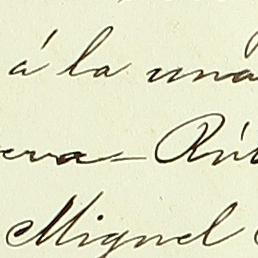 á la una
era= Rú
Miguel